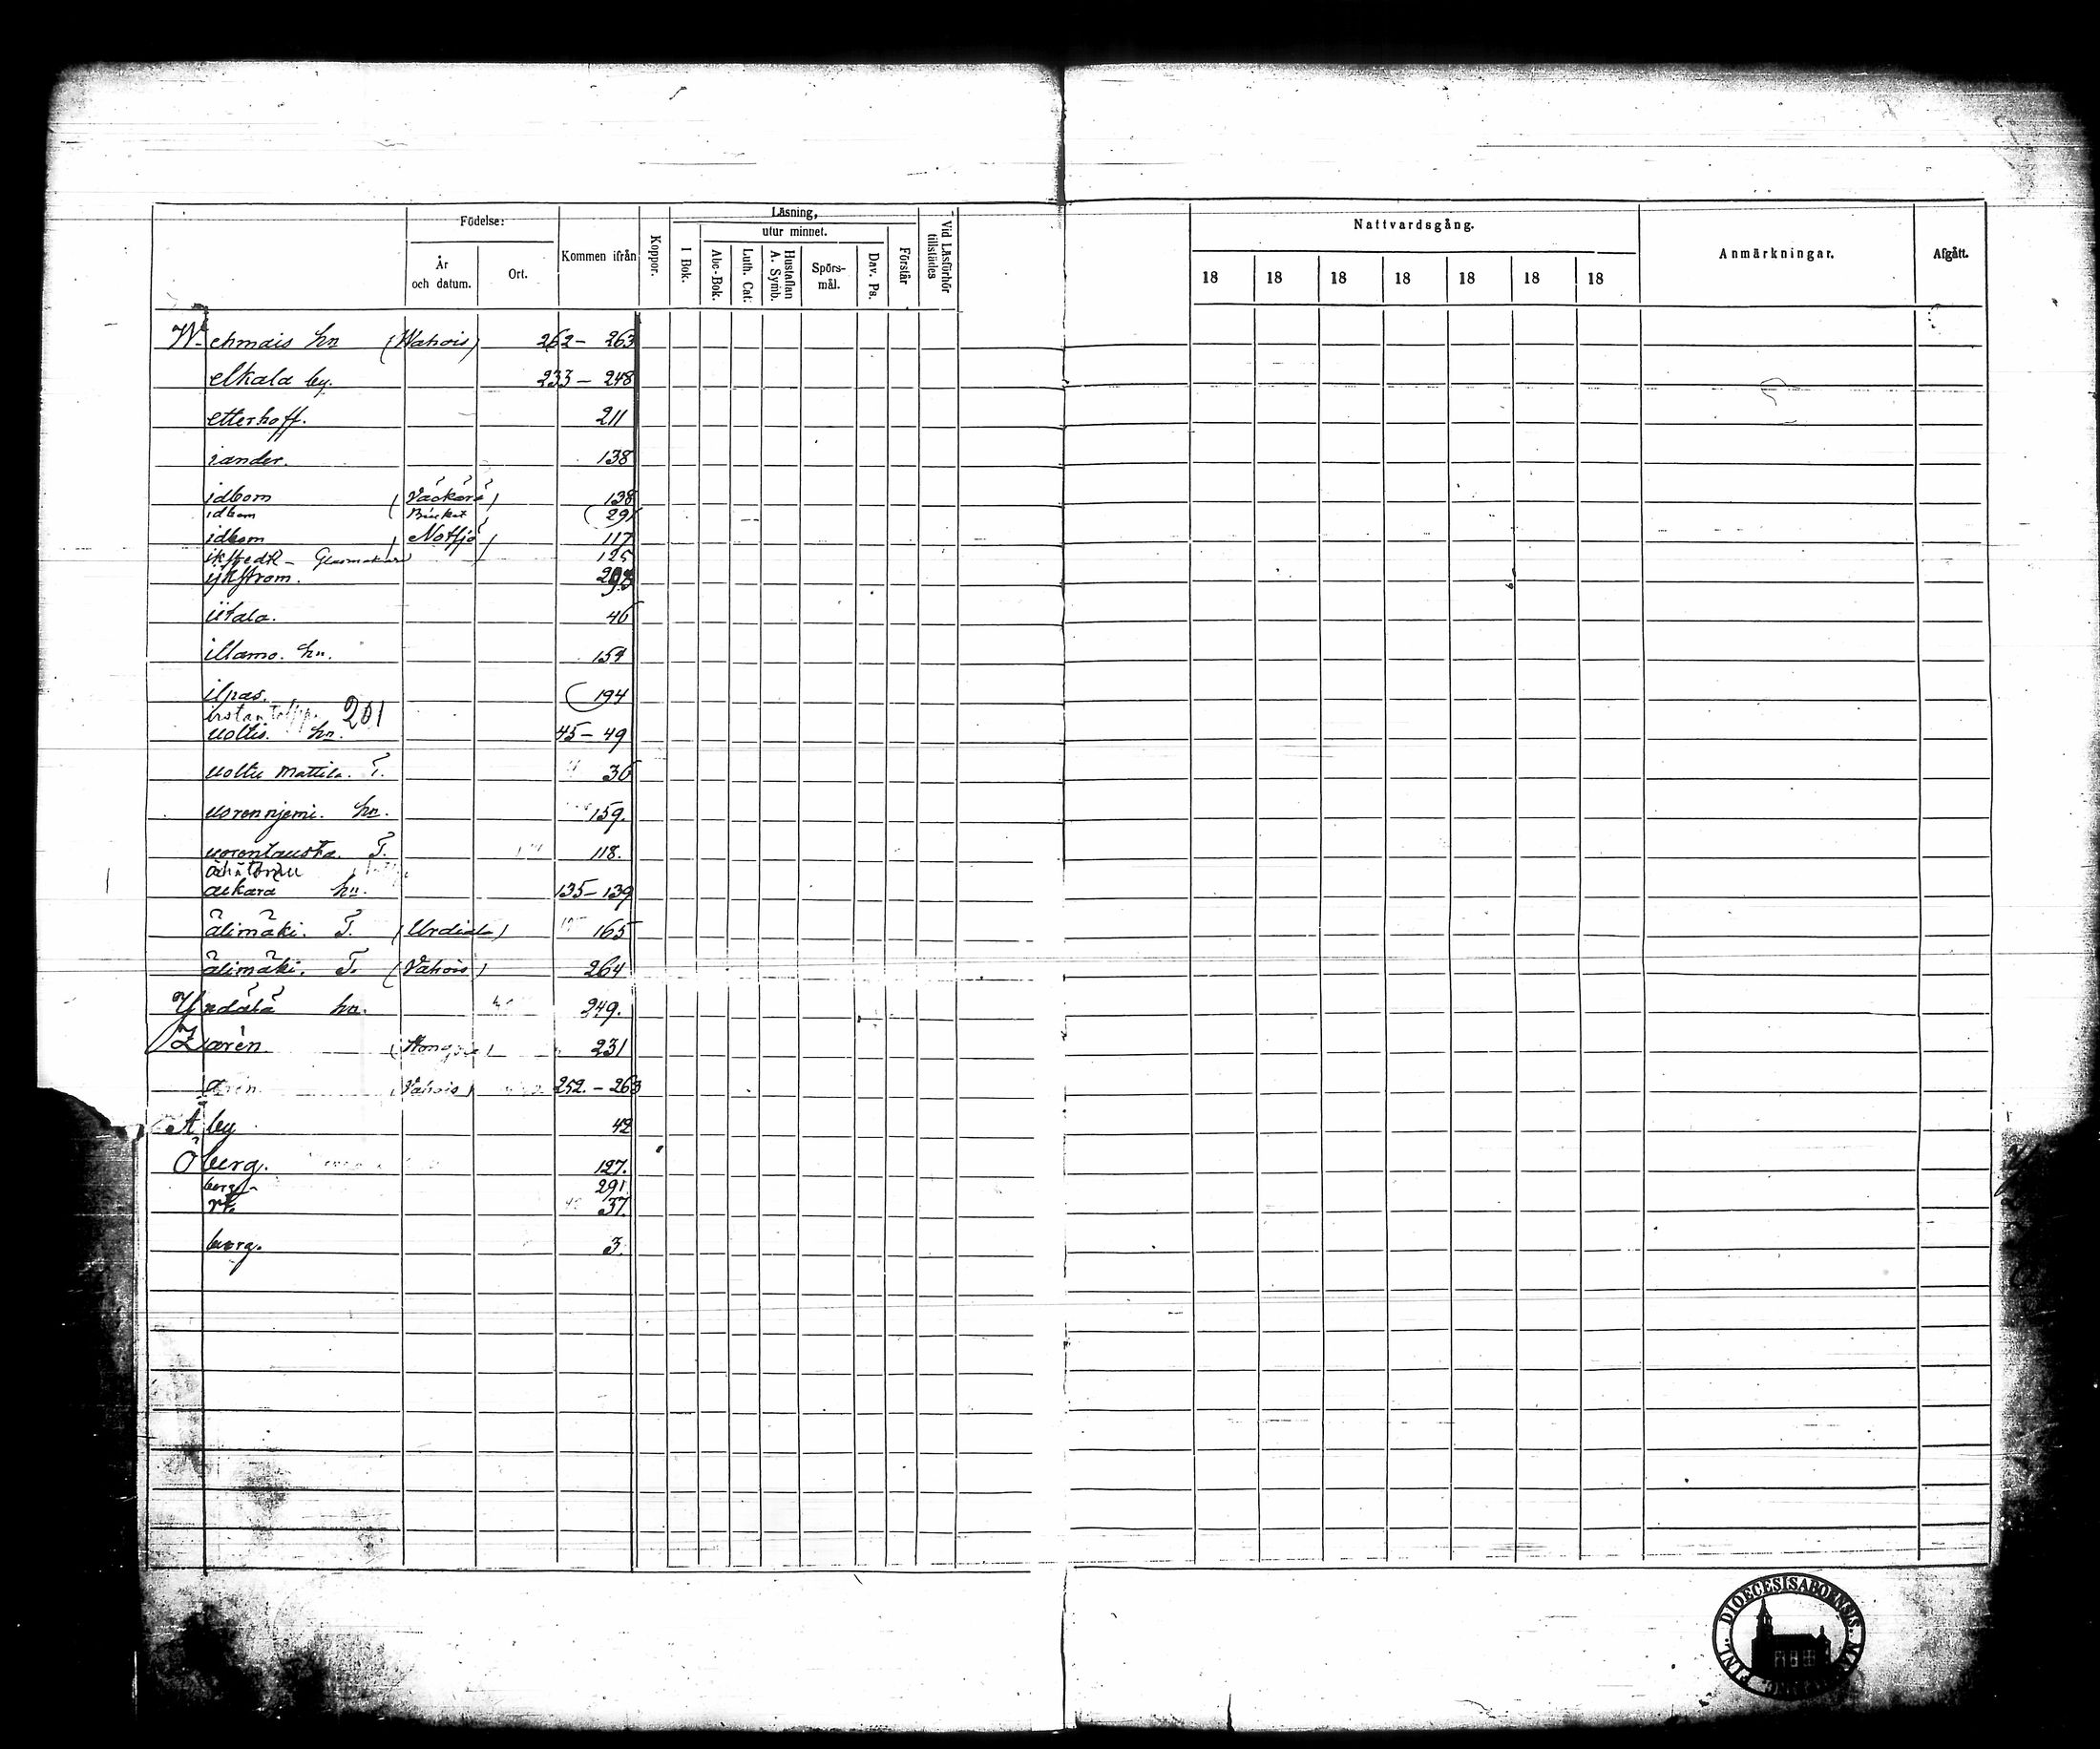 Födelse:
År och datum.
Ort.
Kommen ifrån
Koppor.
Läsning,
utur minnet.
I Bok.
Abc-Bok.
Luth. Cat.
Hustaflan A. Symb.
Spörsmål.
Dav. Ps.
Förstår
Vid Läsförhör tillstädes
Nattvardsgång.
18 18 18 18 18 18 18
Anmärkningar.
Afgått.
W ehmais hn (Wahois) 262 - 263
elkala by. 233 - 248
etterhoff. 211
iander. 138
idbom (Väckärä) 138
idbom 291
idbom (Notsjö) 117
ikstedt - 125
ijkström.
iitala. 46
illamo. hn. 154
ilpas. 194
201
uoltis. hn. 45 - 49
uoltu Mattila. T. 36
uorenniemi. hn. 159.
uorentausta. T. 118.
äckärä hn. 135 - 139
älimäki. T. (Urdiala) 165
älimäki. T. (Vahois) 264
Yrdälä hn. 249.
Zarén 231
arén (Vahois) 252. - 263
Å by 42
Ö berg. 127.
berg - 291
37.
berg. 3.
FINL. DIOECESIS ABOENSIS